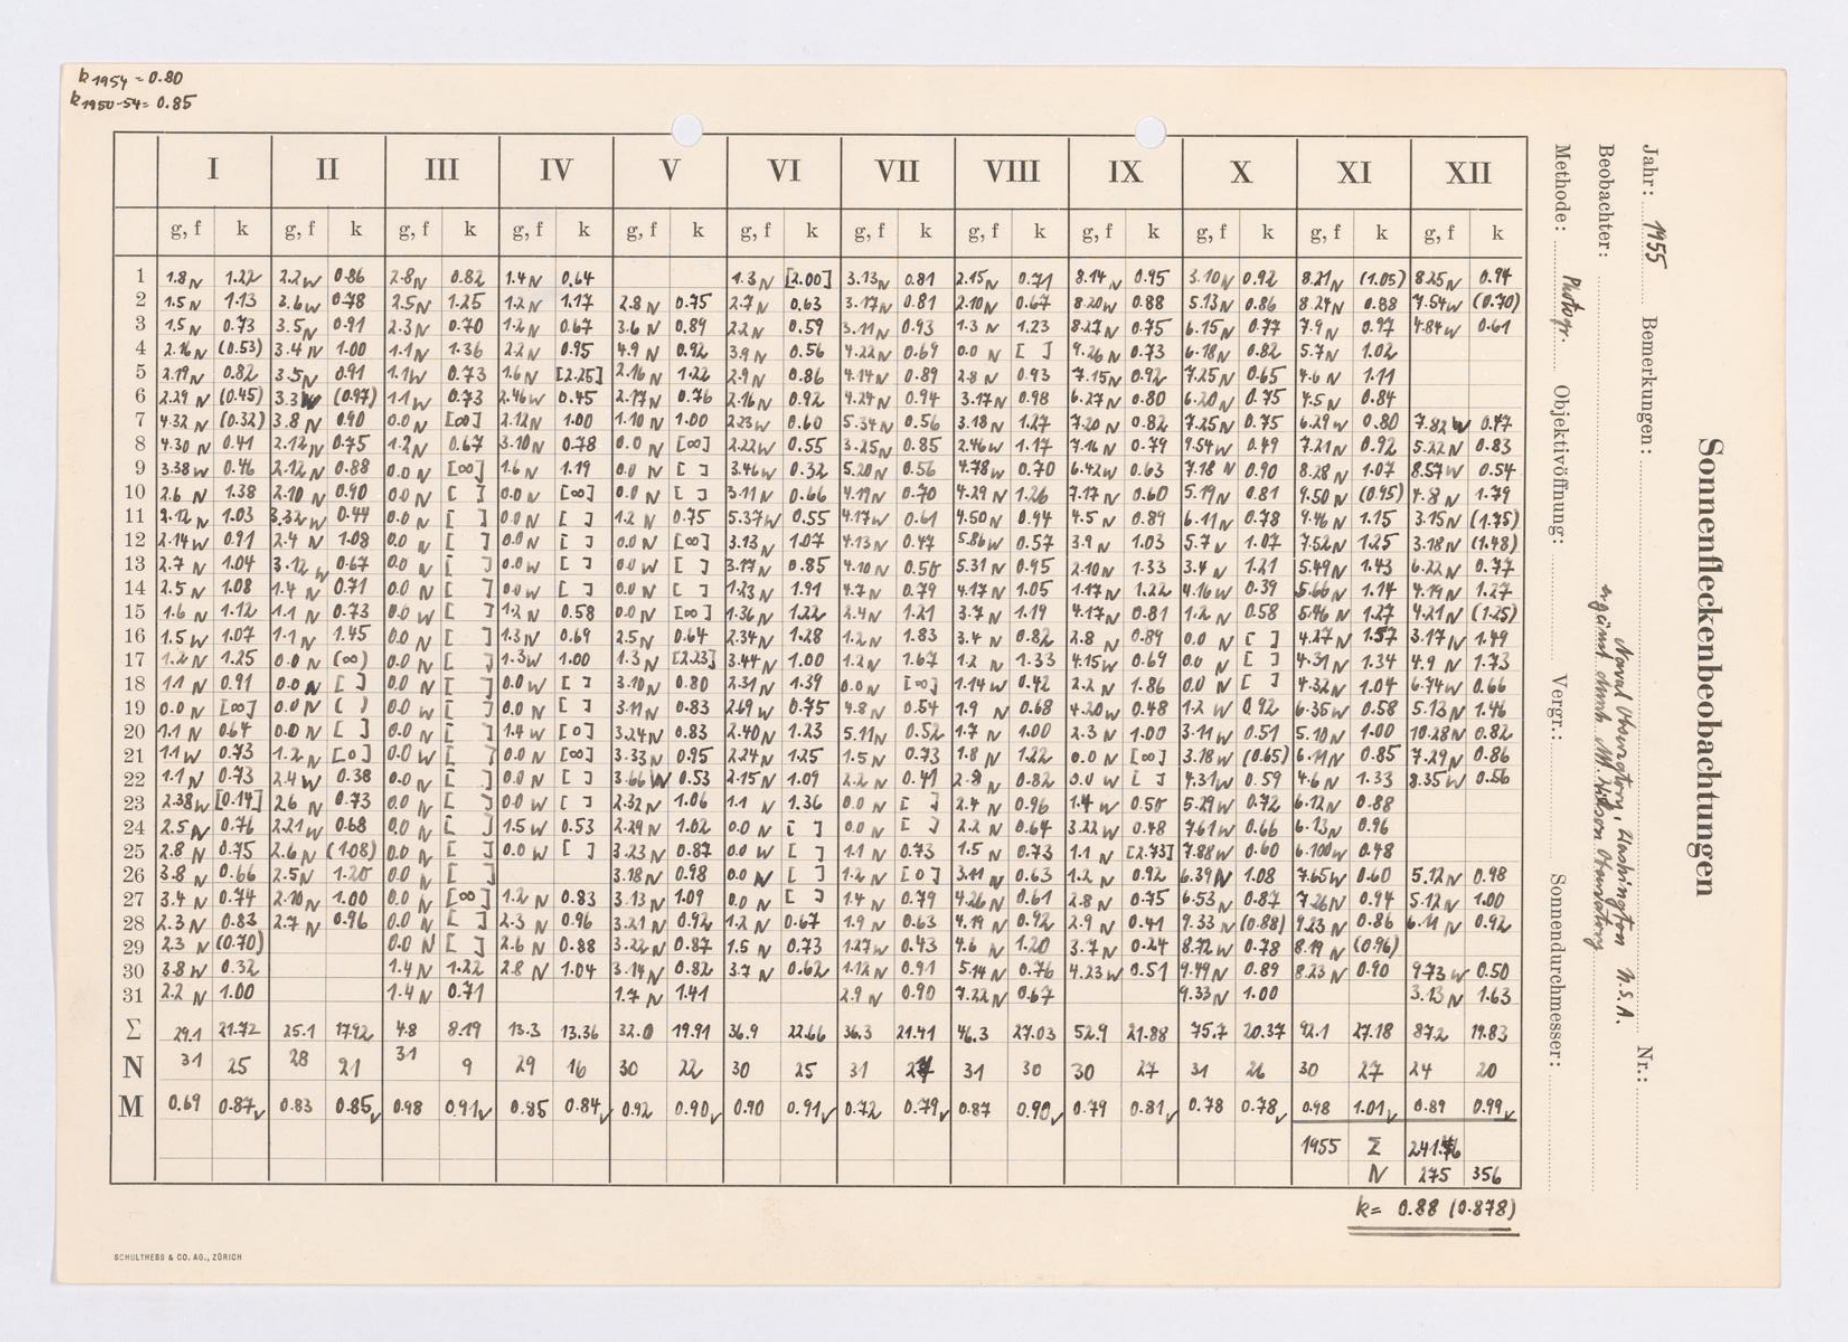 k1954 = 0.80
k1950-54 = 0.85
Sonnenfleckenbeobachtungen
Jahr: 1955 Bemerkungen: Nr.:
Beobachter: Naval Observatory, Washington U.S.A.
ergänzt durch Mt. Wilson Observatory
Methode: Photogr. Objektivöffnung: Vergr.: Sonnendurchmesser:
I II III IV V VI VII VIII IX X XI XII
g, f k g, f k g, f k g, f k g, f k g, f k g, f k g, f k g, f k g, f k g, f k g, f k
1 1.8 N 1.22 2.2 W 0.86 2.8 N 0.82 1.4 N 0.64 1.3 N [2.00] 3.13 N 0.81 2.15 N 0.71 8.14 N 0.95 3.10 N 0.92 8.21 N (1.05) 8.25 N 0.94
2 1.5 N 1.13 2.6 W 0.78 2.5 N 1.25 1.2 N 1.17 2.8 N 0.75 2.7 N 0.63 3.17 N 0.81 2.10 N 0.67 8.20 W 0.88 5.13 N 0.86 8.24 N 0.88 7.54 W (0.70)
3 1.5 N 0.73 3.5 N 0.91 2.3 N 0.70 1.2 N 0.67 3.6 N 0.89 2.2 N 0.59 3.11 N 0.93 1.3 N 1.23 8.27 N 0.75 6.15 N 0.77 7.9 N 0.97 4.84 W 0.61
4 2.16 N (0.53) 3.4 N 1.00 1.1 N 1.36 2.2 N 0.95 4.9 N 0.92 3.9 N 0.56 4.22 N 0.69 0.0 N [ ] 9.26 N 0.73 6.18 N 0.82 5.7 N 1.02
5 2.19 N 0.82 3.5 N 0.91 1.1 W 0.73 1.6 N [2.25] 2.16 N 1.22 2.9 N 0.86 4.14 N 0.89 2.8 N 0.93 7.15 N 0.92 7.25 N 0.65 4.6 N 1.11
6 2.29 N (0.45) 3.3 W (0.97) 1.1 W 0.73 2.46 W 0.45 2.17 N 0.76 2.16 N 0.92 4.24 N 0.94 3.17 N 0.98 6.27 N 0.80 6.20 N 0.75 4.5 N 0.84
7 4.32 N (0.32) 3.8 N 0.90 0.0 N [∞] 2.12 N 1.00 1.10 N 1.00 2.23 W 0.60 5.34 N 0.56 3.18 N 1.27 7.20 N 0.82 7.25 N 0.75 6.29 W 0.80 7.82 W 0.47
8 4.30 N 0.41 2.12 N 0.75 1.2 N 0.67 3.10 N 0.78 0.0 N [∞] 2.22 W 0.55 3.25 N 0.85 2.46 W 1.17 7.16 N 0.79 9.54 W 0.49 7.21 N 0.92 5.22 N 0.83
9 3.38 W 0.46 2.12 N 0.88 0.0 N [∞] 1.6 N 1.19 0.0 N [ ] 3.46 W 0.32 5.20 N 0.56 4.78 W 0.70 6.42 W 0.63 7.18 N 0.90 8.28 N 1.07 8.57 W 0.54
10 2.6 N 1.38 2.10 N 0.90 0.0 N [ ] 0.0 N [∞] 0.0 N [ ] 3.11 N 0.66 4.19 N 0.70 4.29 N 1.26 7.17 N 0.60 5.19 N 0.81 9.50 N (0.95) 4.8 N 1.79
11 2.12 N 1.03 3.32 W 0.44 0.0 N [ ] 0.0 N [ ] 1.2 N 0.75 5.37 W 0.55 4.17 W 0.61 4.50 N 0.94 4.5 N 0.89 6.11 N 0.78 9.46 N 1.15 3.15 N (1.75)
12 2.14 W 0.91 2.4 N 1.08 0.0 N [ ] 0.0 N [ ] 0.0 N [∞] 3.13 N 1.07 4.13 N 0.47 5.86 W 0.57 3.9 N 1.03 5.7 N 1.07 7.52 N 1.25 3.18 N (1.48)
13 2.7 N 1.04 3.12 W 0.67 0.0 N [ ] 0.0 W [ ] 0.0 W [ ] 3.17 N 0.85 4.10 N 0.50 5.31 N 0.95 2.10 N 1.33 3.4 N 1.21 5.49 N 1.43 6.22 N 0.77
14 2.5 N 1.08 1.4 N 0.71 0.0 N [ ] 0.0 W [ ] 0.0 N [ ] 1.23 N 1.91 4.7 N 0.79 4.17 N 1.05 1.17 N 1.22 4.16 W 0.39 5.66 N 1.14 4.19 N 1.27
15 1.6 N 1.12 1.1 N 0.73 0.0 W [ ] 1.2 N 0.58 0.0 N [∞] 1.36 N 1.22 2.4 N 1.21 3.7 N 1.19 4.17 N 0.81 1.2 N 0.58 5.46 N 1.27 4.21 N (1.25)
16 1.5 W 1.07 1.1 N 1.45 0.0 N [ ] 1.3 N 0.69 2.5 N 0.64 2.34 N 1.28 1.2 N 1.83 3.4 N 0.82 2.8 N 0.89 0.0 N [ ] 4.27 N 1.57 3.17 N 1.49
17 1.2 N 1.25 0.0 N (∞) 0.0 N [ ] 1.3 W 1.00 1.3 N [2.23] 3.44 N 1.00 1.2 N 1.67 1.2 N 1.33 4.15 W 0.69 0.0 N [ ] 4.31 N 1.34 4.9 N 1.73
18 1.1 N 0.91 0.0 N [ ] 0.0 N [ ] 0.0 W [ ] 3.10 N 0.80 2.31 N 1.39 0.0 N [∞] 1.14 W 0.42 2.2 N 1.86 0.0 N [ ] 4.32 N 1.04 6.74 W 0.66
19 0.0 N [∞] 0.0 N ( ) 0.0 W [ ] 0.0 N [ ] 3.11 N 0.83 2.69 W 0.75 4.8 N 0.54 1.9 N 0.68 4.20 W 0.48 1.2 W 0.92 6.35 W 0.58 5.13 N 1.46
20 1.1 N 0.64 0.0 N [ ] 0.0 N [ ] 1.4 W [0] 3.24 N 0.83 2.40 N 1.23 5.11 N 0.52 1.7 N 1.00 2.3 N 1.00 3.11 W 0.51 5.10 N 1.00 10.28 N 0.82
21 1.1 W 0.73 1.2 N [0] 0.0 W [ ] 0.0 N [∞] 3.33 N 0.95 2.24 N 1.25 1.5 N 0.73 1.8 N 1.22 0.0 N [∞] 3.18 W (0.65) 6.11 N 0.85 7.29 N 0.86
22 1.1 N 0.73 2.4 W 0.38 0.0 N [ ] 0.0 N [ ] 3.66 W 0.53 2.15 N 1.09 2.2 N 0.41 2.8 N 0.82 0.0 W [ ] 4.31 W 0.59 4.6 N 1.33 8.35 W 0.56
23 2.38 W [0.14] 2.6 N 0.73 0.0 N [ ] 0.0 W [ ] 2.32 N 1.06 1.1 N 1.36 0.0 N [ ] 2.4 N 0.96 1.4 W 0.50 5.29 W 0.72 6.12 N 0.88
24 2.5 N 0.76 2.21 W 0.68 0.0 N [ ] 1.5 W 0.53 2.29 N 1.02 0.0 N [ ] 0.0 N [ ] 2.2 N 0.64 3.22 W 0.48 7.61 W 0.66 6.13 N 0.96
25 2.8 N 0.75 2.6 N (1.08) 0.0 N [ ] 0.0 W [ ] 3.23 N 0.87 0.0 W [ ] 1.1 N 0.73 1.5 N 0.73 1.1 N [2.73] 7.88 W 0.60 6.100 W 0.48
26 3.8 N 0.66 2.5 N 1.20 0.0 N [ ] 3.18 N 0.98 0.0 N [ ] 1.2 N [0] 3.11 N 0.63 1.2 N 0.92 6.39 N 1.08 7.65 W 0.60 5.12 N 0.98
27 3.4 N 0.74 2.10 N 1.00 0.0 N [∞] 1.2 N 0.83 3.13 N 1.09 0.0 N [ ] 1.4 N 0.79 4.26 N 0.61 2.8 N 0.75 6.53 N 0.87 7.26 N 0.94 5.12 N 1.00
28 2.3 N 0.83 2.7 N 0.96 0.0 N [ ] 2.3 N 0.96 3.21 N 0.92 1.2 N 0.67 1.9 N 0.63 4.19 N 0.92 2.9 N 0.41 9.33 N (0.88) 9.23 N 0.86 6.11 N 0.92
29 2.3 N (0.70) 0.0 N [ ] 2.6 N 0.88 3.22 N 0.87 1.5 N 0.73 1.27 W 0.43 4.6 N 1.20 3.7 N 0.24 8.72 W 0.78 8.19 N (0.96)
30 3.8 W 0.32 1.4 N 1.22 2.8 N 1.04 3.14 N 0.82 3.7 N 0.62 1.12 N 0.91 5.14 N 0.76 4.23 W 0.51 9.49 N 0.89 8.23 N 0.90 9.73 W 0.50
31 2.2 N 1.00 1.4 N 0.71 1.7 N 1.41 2.9 N 0.90 7.22 N 0.67 9.33 N 1.00 3.13 N 1.63
Σ 29.1 21.72 25.1 17.92 4.8 8.19 13.3 13.36 32.0 19.91 36.9 22.66 36.3 21.41 46.3 27.03 52.9 21.88 75.7 20.37 92.1 27.18 87.2 19.83
N 31 25 28 21 31 9 29 16 30 22 30 25 31 27 31 30 30 27 31 26 30 27 24 20
M 0.69 0.87✓ 0.83 0.85✓ 0.98 0.91✓ 0.85 0.84✓ 0.92 0.90✓ 0.90 0.91✓ 0.72 0.79✓ 0.87 0.90✓ 0.79 0.81✓ 0.78 0.78✓ 0.98 1.01✓ 0.89 0.99✓
1955 Σ
N 275 356
k= 0.88 (0.878)
SCHULTHESS & CO. AG., ZÜRICH